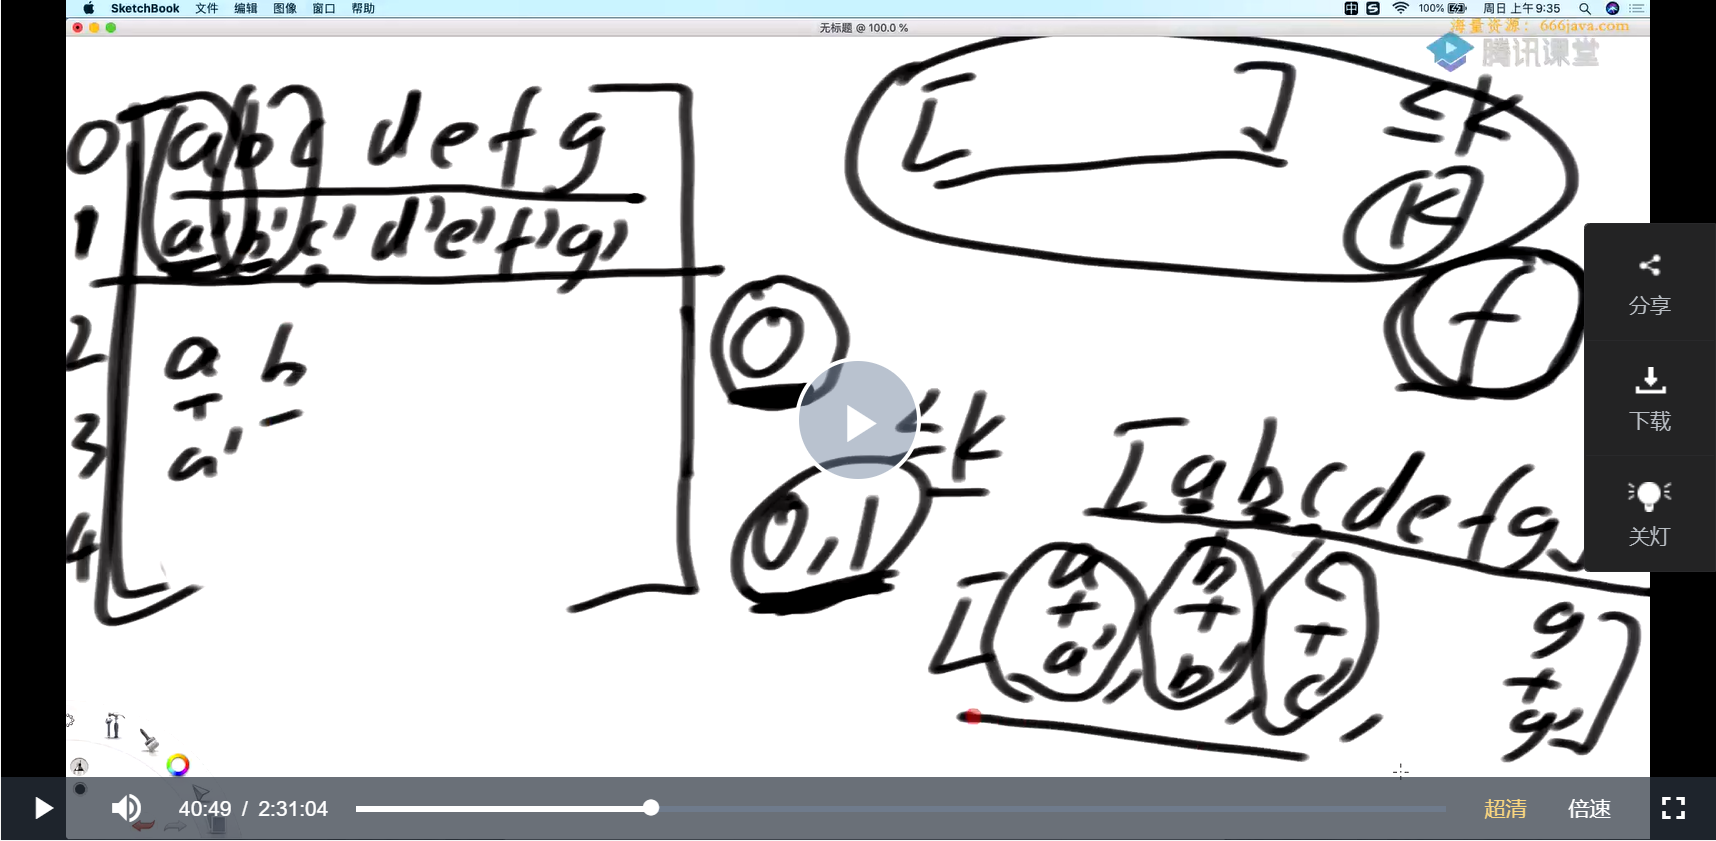 SketchBook 文件 编辑 图像 窗口 帮助
100% 周日 上午9:35
无标题 @ 100.0 %
海量资源：666java.com
腾讯课堂
0 a b c d e f g
1 a' b' c' d' e' f' g'
2 a b
+ -
3 a'
4
[ ] ≤k
K
f
0
≤k
0,1
[a b c d e f g]
[a+a', b+b', c+c', g+g']
分享
下载
关灯
40:49 / 2:31:04
超清 倍速